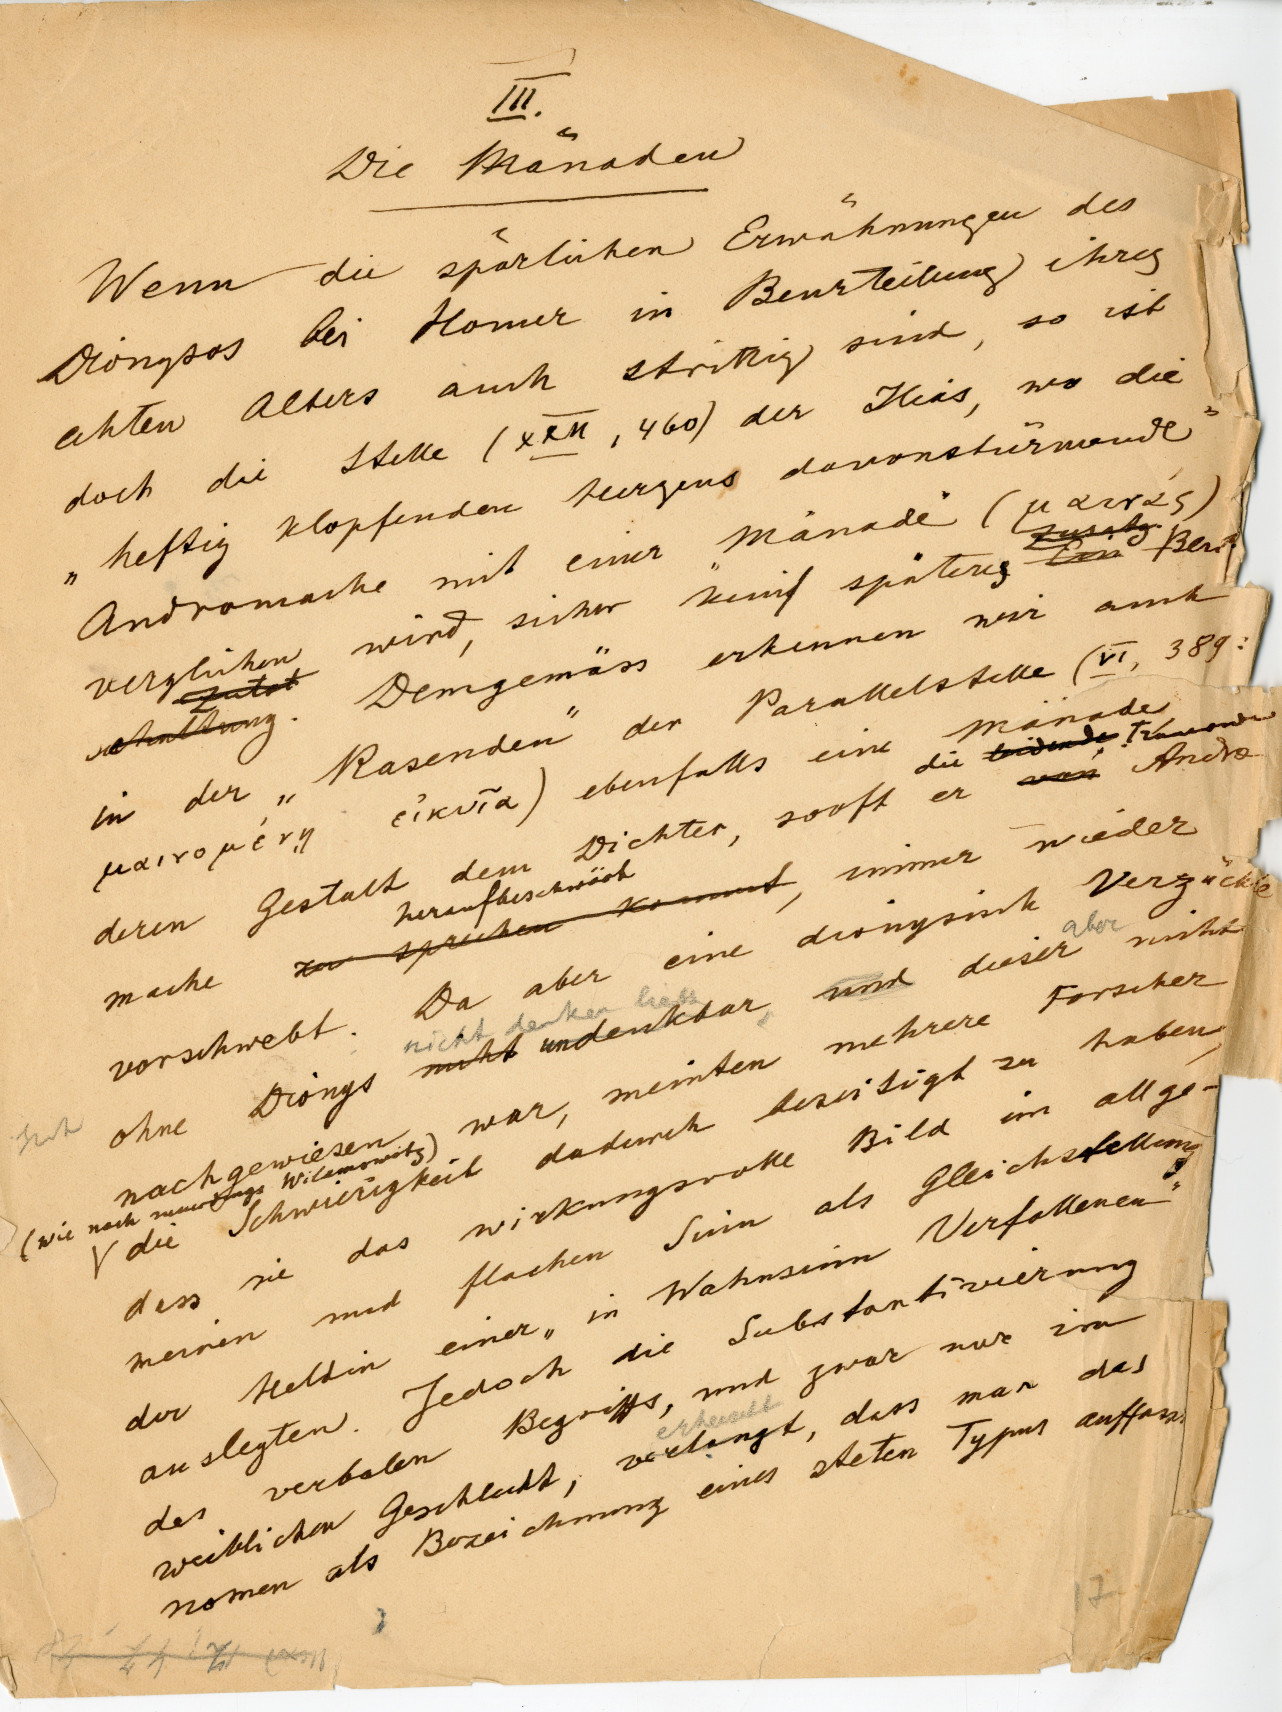 III.
Die Mänaden
Wenn die spärlichen Erwähnungen des
Dionysos bei Homer in Beurteilung ihres
echten Alters auch strittig sind, so ist
doch die Stelle (XXII, 460) der Ilias, wo die
„heftig klopfenden Herzens davonstürmende"
Andromache mit einer "Mänade" (μαινάς)
verglichen wird, sicher keine spätere Zusatz Ein Bear-
Zutat
arbeitung. Demgemäss erkennen wir auch
in der „Rasenden" der Parallelstelle (VI, 389:
μαινομένῃ εἰκυῖα) ebenfalls eine Mänade
deren Gestalt dem Dichter, sooft er die leidende, trauernde von Andro
mache heraufbeschwört zu sprechen kommt, immer wieder
vorschwebt. Da aber eine dionysisch Verzückte
ohne Dionys nicht denken liess nicht undenkbar, und dieser aber nicht
nachgewiesen war, meinten mehrere Forscher
(wie noch neuerdings Wilamowitz)
die Schwierigkeit dadurch beseitigt zu haben,
dass sie das wirkungsvolle Bild im allge-
meinen und flachen Sinn als Gleichstellung
der Heldin einer „in Wahnsinn Verfallenen"
auslegten. Jedoch die Substantivierung
des verbalen Begriffs, und zwar nur im
weiblichen Geschlecht, erheischt verlangt, dass man das
nomen als Bezeichnung eines steten Typus auffass
17